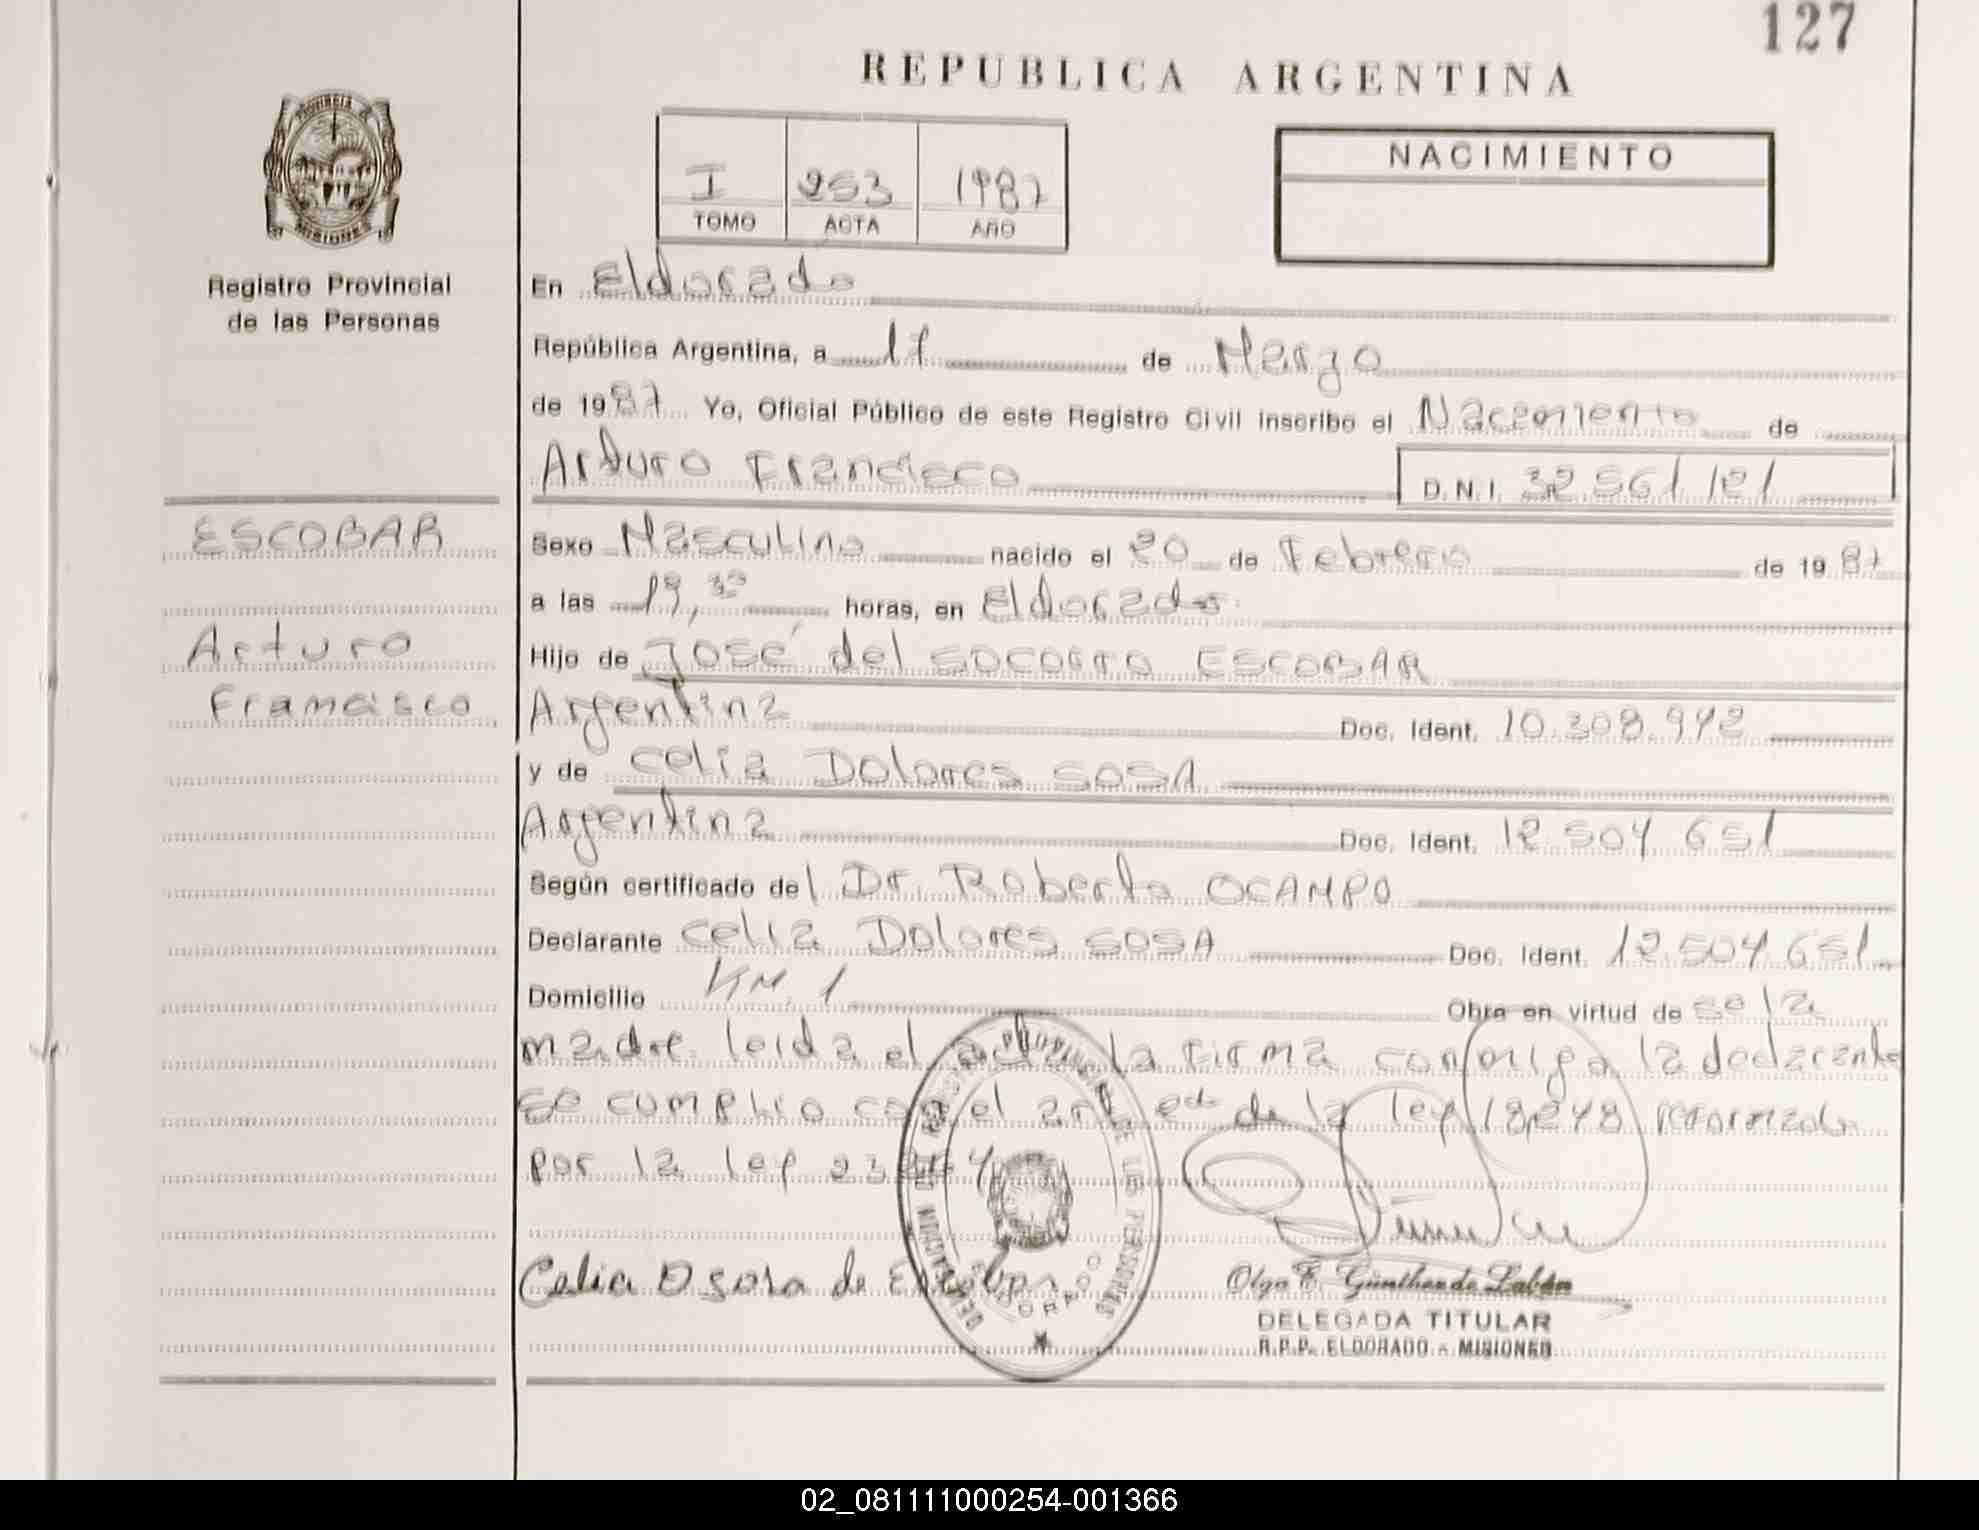 127
REPUBLICA ARGENTINA
PROVINCIA DE
MISIONES
Registro Provincial
de las Personas
I 253 1987
TOMO ACTA AÑO
NACIMIENTO
En Eldorado
República Argentina, a 17 de Marzo
de 1987 Yo, Oficial Público de este Registro Civil inscribo el Nacemiento de
Arturo Francisco D.N.I. 32 561 121
ESCOBAR
Arturo
Francisco
Sexo Masculino nacido el 20 de Febrero de 1987
a las 19,30 horas, en Eldorado.
Hijo de José del SOCORRO ESCOBAR
Argentina Doc. Ident. 10.308.942
y de Celia Dolores SOSA
Argentina Doc. Ident. 12 504 651
Según certificado del Dr. Roberto OCAMPO
Declarante Celia Dolores SOSA Doc. Ident. 12.504 651
Domicilio KM. 1 Obra en virtud de se la
madre leida el acta la firma conmigo la declarante
se cumplio con el art de la ley 18248 reformada
por la ley
Celia D sosa de Escobar
Olga E. Günther de Labán
DELEGADA TITULAR
R.P.P. ELDORADO - MISIONES
DELEGACION REGISTRO PROVINCIAL DE LAS PERSONAS
ELDORADO
02_081111000254-001366